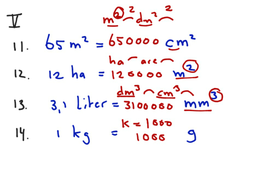 V
m² dm² ²
11. 65 m² = 650000 cm²
ha are
12. 12 ha = 120000 m²
dm³ cm³
13. 3,1 liter = 3100000 mm³
K = 1000
14. 1 kg = 1000 g